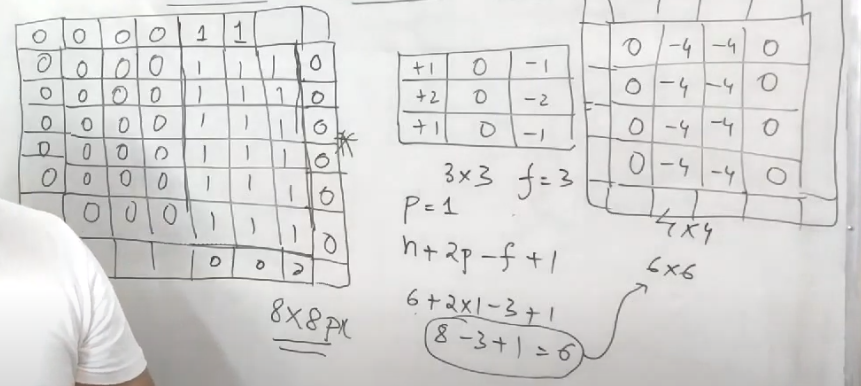 0 0 0 0 1 1
0 0 0 0 1 1 1 0
0 0 0 0 1 1 1 0
0 0 0 0 1 1 1 0
0 0 0 0 1 1 1 0
0 0 0 0 1 1 1 0
0 0 0 1 1 1 0
0 0 0
8×8 px
*
+1 0 -1
+2 0 -2
+1 0 -1
3×3 f=3
p=1
n+2p-f+1
6+2×1-3+1
8-3+1=6
0 -4 -4 0
0 -4 -4 0
0 -4 -4 0
0 -4 -4 0
4×4
6×6